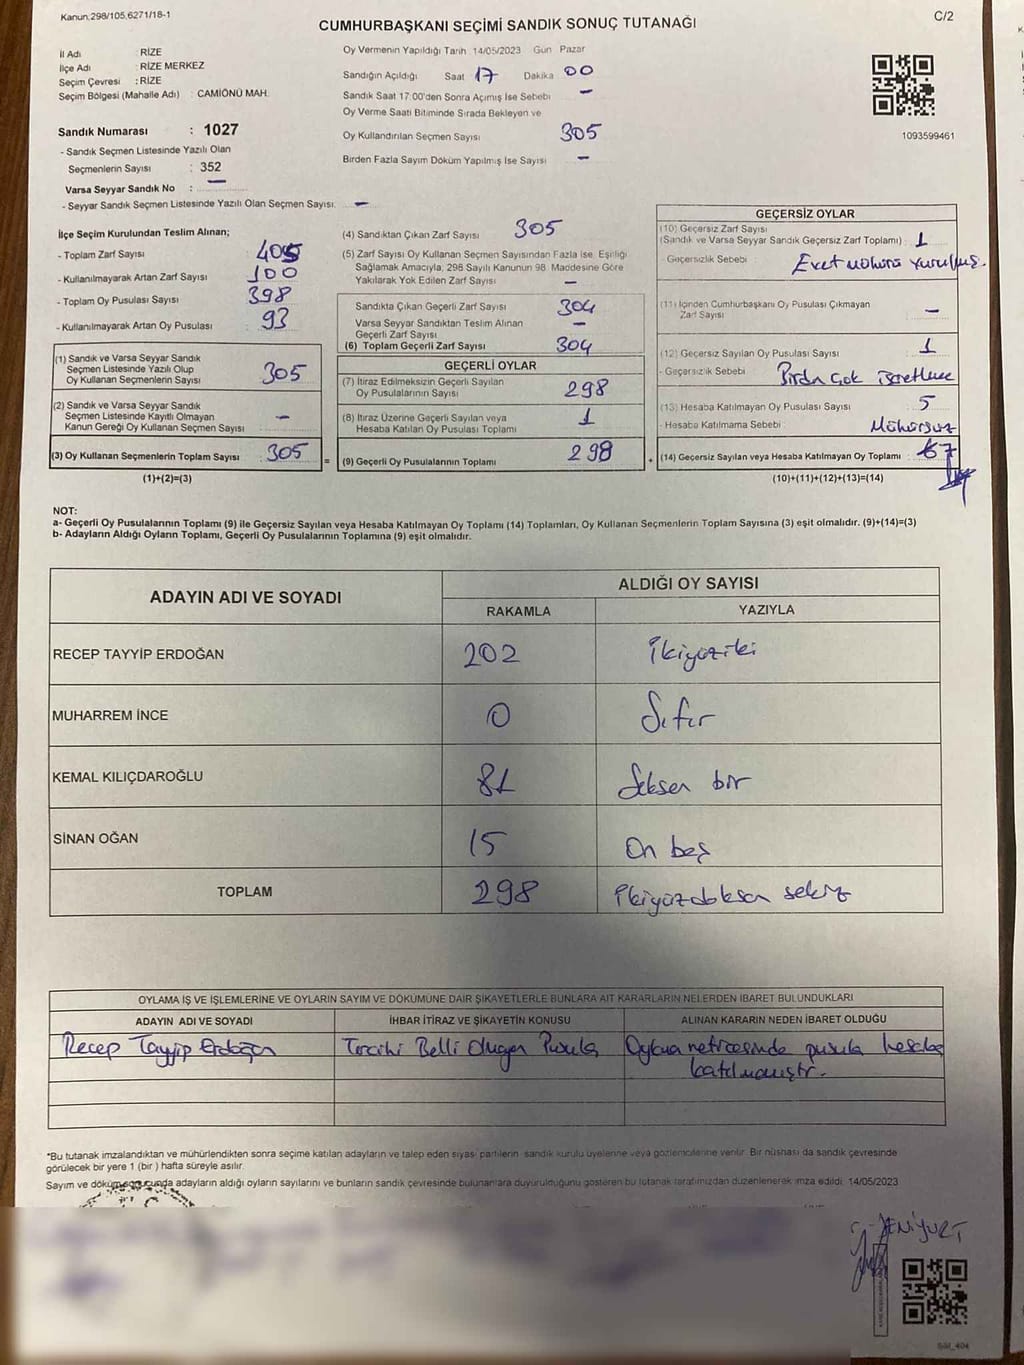 Kanun:298/105,6271/18-1
CUMHURBAŞKANI SEÇİMİ SANDIK SONUÇ TUTANAĞI
C/2
İl Adı : RİZE
İlçe Adı : RİZE MERKEZ
Seçim Çevresi : RİZE
Seçim Bölgesi (Mahalle Adı) : CAMİÖNÜ MAH.
Sandık Numarası : 1027
- Sandık Seçmen Listesinde Yazılı Olan
Seçmenlerin Sayısı : 352
Varsa Seyyar Sandık No : —
- Seyyar Sandık Seçmen Listesinde Yazılı Olan Seçmen Sayısı: —
Oy Vermenin Yapıldığı Tarih 14/05/2023 Gün Pazar
Sandığın Açıldığı Saat 17 Dakika 00
Sandık Saat 17:00'den Sonra Açımış İse Sebebi —
Oy Verme Saati Bitiminde Sırada Bekleyen ve
Oy Kullandırılan Seçmen Sayısı 305
Birden Fazla Sayım Döküm Yapılmış İse Sayısı —
1093599461
İlçe Seçim Kurulundan Teslim Alınan;
- Toplam Zarf Sayısı 405
- Kullanılmayarak Artan Zarf Sayısı 100
- Toplam Oy Pusulası Sayısı 398
- Kullanılmayarak Artan Oy Pusulası 93
(1) Sandık ve Varsa Seyyar Sandık
Seçmen Listesinde Yazılı Olup
Oy Kullanan Seçmenlerin Sayısı 305
(2) Sandık ve Varsa Seyyar Sandık
Seçmen Listesinde Kayıtlı Olmayan
Kanun Gereği Oy Kullanan Seçmen Sayısı —
(3) Oy Kullanan Seçmenlerin Toplam Sayısı : 305
(1)+(2)=(3)
(4) Sandıktan Çıkan Zarf Sayısı 305
(5) Zarf Sayısı Oy Kullanan Seçmen Sayısından Fazla İse, Eşitliği
Sağlamak Amacıyla, 298 Sayılı Kanunun 98. Maddesine Göre
Yakılarak Yok Edilen Zarf Sayısı —
Sandıkta Çıkan Geçerli Zarf Sayısı 304
Varsa Seyyar Sandıktan Teslim Alınan
Geçerli Zarf Sayısı —
(6) Toplam Geçerli Zarf Sayısı 304
GEÇERLİ OYLAR
(7) İtiraz Edilmeksizin Geçerli Sayılan
Oy Pusulalarının Sayısı 298
(8) İtiraz Üzerine Geçerli Sayılan veya
Hesaba Katılan Oy Pusulası Toplamı 1
(9) Geçerli Oy Pusulalarının Toplamı 298
GEÇERSİZ OYLAR
(10) Geçersiz Zarf Sayısı
(Sandık ve Varsa Seyyar Sandık Geçersiz Zarf Toplamı) : 1
- Geçersizlik Sebebi : Evet mührü vurulmuş.
(11) İçinden Cumhurbaşkanı Oy Pusulası Çıkmayan
Zarf Sayısı —
(12) Geçersiz Sayılan Oy Pusulası Sayısı 1
- Geçersizlik Sebebi Birden çok işaretleme
(13) Hesaba Katılmayan Oy Pusulası Sayısı 5
- Hesaba Katılmama Sebebi : Mühürsüz
(14) Geçersiz Sayılan veya Hesaba Katılmayan Oy Toplamı : 7
(10)+(11)+(12)+(13)=(14)
NOT:
a- Geçerli Oy Pusulalarının Toplamı (9) ile Geçersiz Sayılan veya Hesaba Katılmayan Oy Toplamı (14) Toplamları, Oy Kullanan Seçmenlerin Toplam Sayısına (3) eşit olmalıdır. (9)+(14)=(3)
b- Adayların Aldığı Oyların Toplamı, Geçerli Oy Pusulalarının Toplamına (9) eşit olmalıdır.
ADAYIN ADI VE SOYADI
ALDIĞI OY SAYISI
RAKAMLA YAZIYLA
RECEP TAYYİP ERDOĞAN 202 İkiyüziki
MUHARREM İNCE 0 Sıfır
KEMAL KILIÇDAROĞLU 81 Seksen bir
SİNAN OĞAN 15 On beş
TOPLAM 298 İkiyüzdoksan sekiz
OYLAMA İŞ VE İŞLEMLERİNE VE OYLARIN SAYIM VE DÖKÜMÜNE DAİR ŞİKAYETLERLE BUNLARA AİT KARARLARIN NELERDEN İBARET BULUNDUKLARI
ADAYIN ADI VE SOYADI İHBAR İTİRAZ VE ŞİKAYETİN KONUSU ALINAN KARARIN NEDEN İBARET OLDUĞU
Recep Tayyip Erdoğan Tercihi Belli Olmayan Pusula Oylama neticesinde pusula hesaba
katılmamıştır.
*Bu tutanak imzalandıktan ve mühürlendikten sonra seçime katılan adayların ve talep eden siyasi partilerin sandık kurulu üyelerine veya gözlemcilerine verilir. Bir nüshası da sandık çevresinde
görülecek bir yere 1 (bir) hafta süreyle asılır.
Sayım ve döküm sonucunda adayların aldığı oyların sayılarını ve bunların sandık çevresinde bulunanlara duyurulduğunu gösteren bu tutanak tarafımızdan düzenlenerek imza edildi. 14/05/2023
YENİYURT